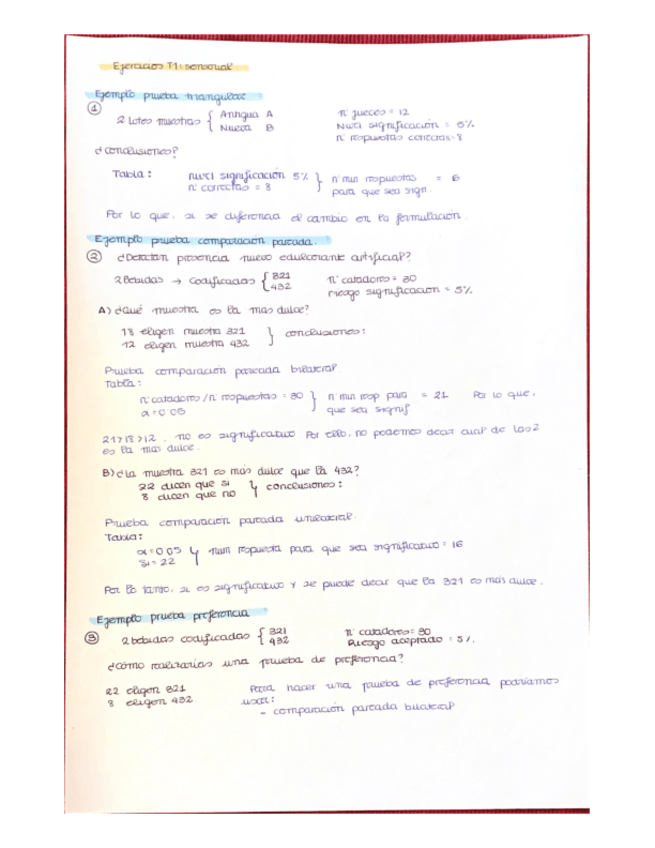 Ejercicios T1: sensorial
Ejemplo prueba triangular
① 2 Lotes muestras { Antigua A
Nueva B
nº jueces = 12
Nivel significación = 5%
nº respuestas correctas = 8
¿conclusiones?
Tabla: nivel significación 5% } nº min respuestas = 8
nº correctas = 8 para que sea sign.
Por lo que, si se diferencia el cambio en la formulación.
Ejemplo prueba comparación pareada.
② ¿Detectan presencia nuevo edulcorante artificial?
2 Bebidas → codificadas { 321
432
nº catadores = 30
riesgo significación = 5%
A) ¿Qué muestra es la más dulce?
18 eligen muestra 321 } conclusiones:
12 eligen muestra 432
Prueba comparación pareada bilateral.
Tabla:
nº catadores / nº respuestas = 30 } nº min resp para = 21 Por lo que,
α = 0'05 que sea signif
21>18>12, no es significativo Por ello, no podemos decir cual de las 2
es la más dulce.
B) ¿La muestra 321 es más dulce que la 432?
22 dicen que si } conclusiones:
8 dicen que no
Prueba comparación pareada unilateral.
Tabla:
α = 0'05 } respuesta para que sea significativo = 16
si = 22
Por lo tanto, si es significativo y se puede decir que la 321 es más dulce.
Ejemplo prueba preferencia
③ 2 bebidas codificadas { 321
432
nº catadores = 30
Riesgo aceptado = 5%.
¿cómo realizarias una prueba de preferencia?
22 eligen 321
8 eligen 432
Para hacer una prueba de preferencia podríamos
usar:
- comparación pareada bilateral